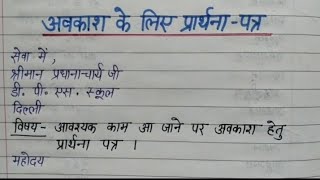 अवकाश के लिए प्रार्थना-पत्र
सेवा में,
श्रीमान प्रधानाचार्य जी
डी. पी. एस. स्कूल
दिल्ली
विषय- आवश्यक काम आ जाने पर अवकाश हेतु
प्रार्थना पत्र ।
महोदय